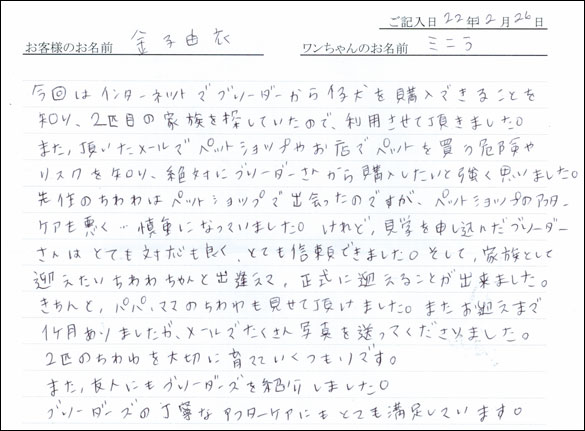 ご記入日 22年2月26日
お客様のお名前 金子由衣 ワンちゃんのお名前 ミニラ
今回はインターネットでブリーダーから仔犬を購入できることを
知り、2匹目の家族を探していたので、利用させて頂きました。
また、頂いたメールでペットショップやお店でペットを買う危険や
リスクを知り、絶対にブリーダーさんから購入したいと強く思いました。
先住のちわわはペットショップで出会ったのですが、ペットショップのアフター
ケアも悪く…慎重になっていました。けれど、見学を申し込んだブリーダー
さんはとても対応も良く、とても信頼できました。そして、家族として
迎えたいちわわちゃんと出逢えて、正式に迎えることが出来ました。
きちんと、パパ、ママのちわわも見せて頂けました。またお迎えまで
1ヶ月ありましたが、メールでたくさん写真を送ってくださいました。
2匹のちわわを大切に育てていくつもりです。
また、友人にもブリーダーズを紹介しました。
ブリーダーズの丁寧なアフターケアにもとても満足しています。